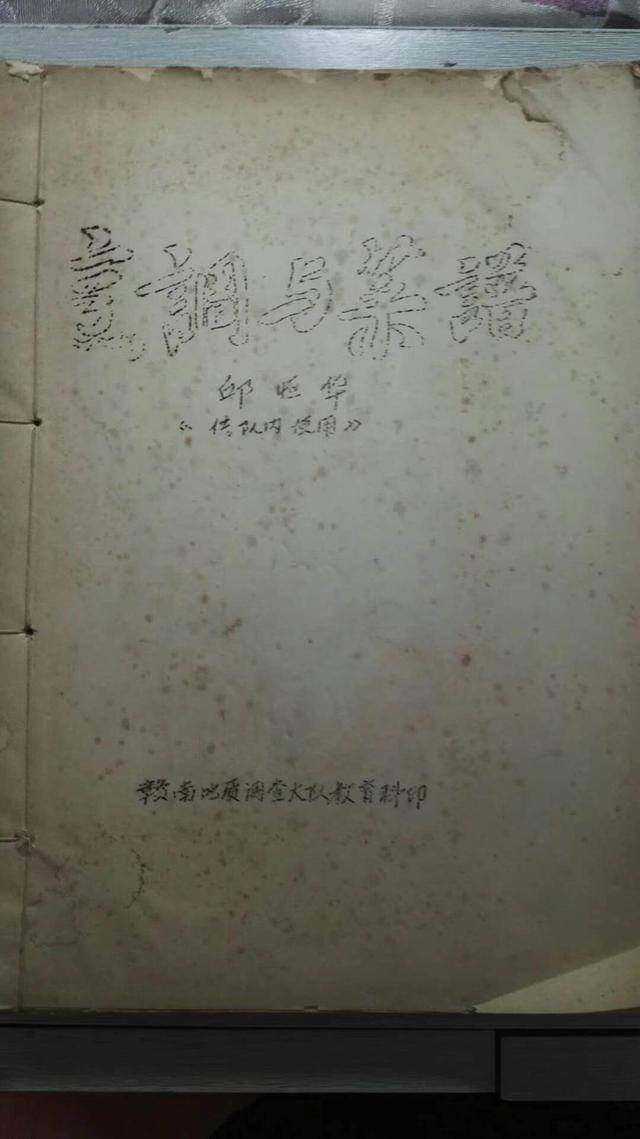 烹調与菜譜
邱恒华
《供队内使用》
赣南地质调查大队教育科印